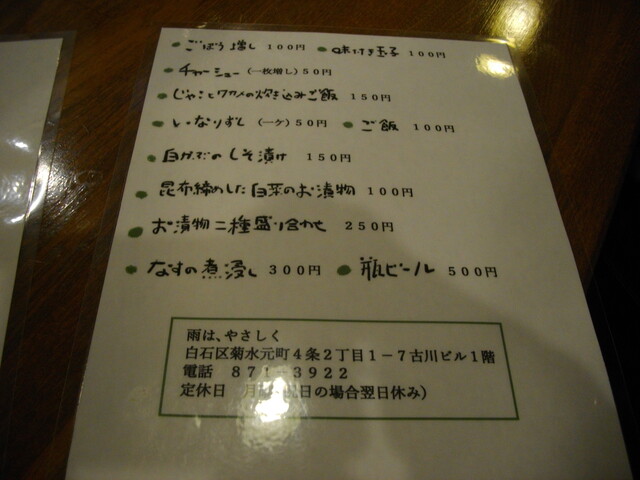 ごぼう増し 100円 味付き玉子 100円
チャーシュー (一枚増し) 50円
じゃことワカメの炊き込みご飯 150円
いなりずし (一ケ) 50円 ご飯 100円
白かぶのしそ漬け 150円
昆布締めした白菜のお漬物 100円
お漬物二種盛り合わせ 250円
なすの煮浸し 300円 瓶ビール 500円
雨は、やさしく
白石区菊水元町4条2丁目1-7古川ビル1階
電話 871 3922
定休日 月 日の場合翌日休み)